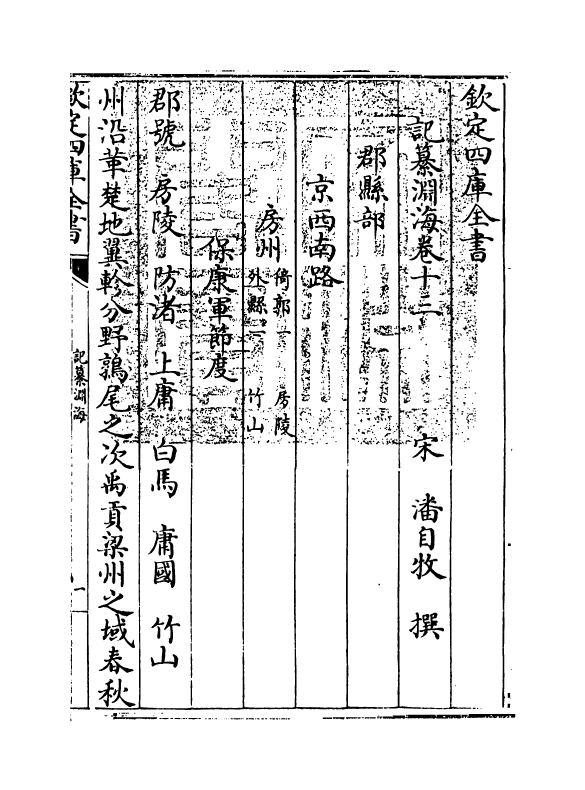 欽定四庫全書
記纂淵海卷十三　　宋　潘自牧　撰
郡縣部
京西南路
房州　倚郭一　房陵
外縣一　竹山
保康軍節度
郡號　房陵　防渚　上庸　白馬　庸國　竹山
州沿革楚地翼軫分野鶉尾之次禹貢梁州之域春秋
欽定四庫全書
記纂淵海
一